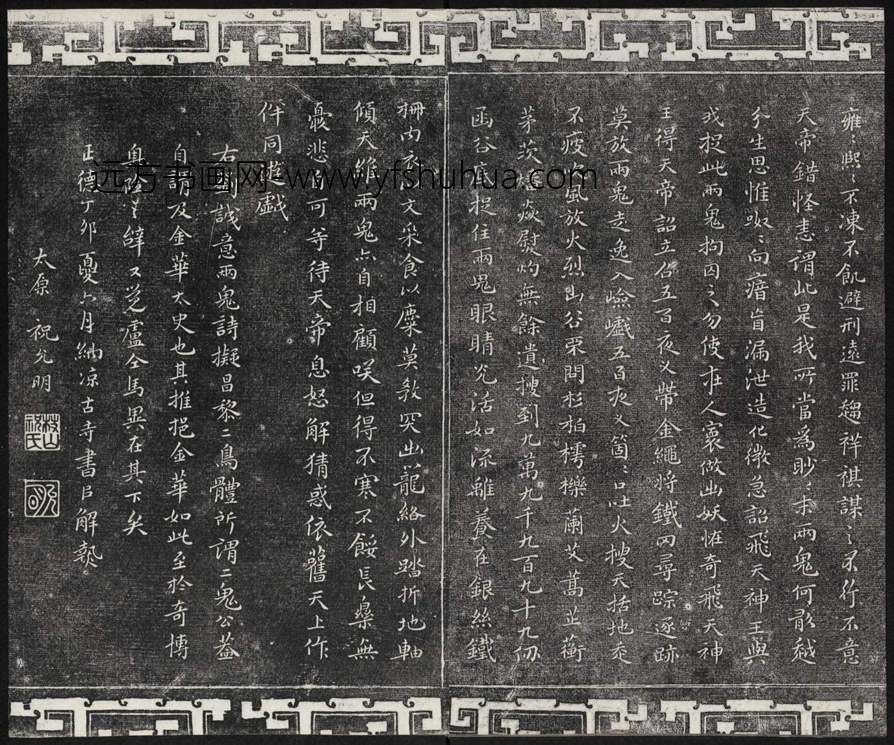 雍雍熙熙不凍不飢避刑遠罪趨祥祺謀之不行不意
天帝錯怪恚謂此是我所當為眇眇末兩鬼何敢越
分生思惟呶呶向瘖盲漏泄造化微急詔飛天神王與
我捉此兩鬼拘囚之勿使在人寰做出妖怪奇飛天神
王得天帝詔立召五百夜叉帶金繩將鐵網尋蹤逐跡
莫放兩鬼走逸入嶮巇五百夜叉箇箇口吐火搜天括地走
不疲吹風放火烈山谷不問杉柏樗櫟蘭艾蒿芷蘅
茅茨燔焱熨灼無餘遺搜到九萬九千九百九十九仞
函谷底捉住兩鬼眼睛光活如流離養在銀絲鐵
柵內衣以文采食以麋莫教突出籠絡外踏折地軸
傾天維兩鬼亦自相顧咲但得不寒不餒長樂無
憂悲自可等待天帝息怒解猜惑依舊天上作
伴同遊戲
右劉誠意兩鬼詩擬昌黎二鳥體所謂二鬼公蓋
自謂及金華太史也其推挹金華如此至於奇博
奧
盧仝馬異在其下矣
正德丁卯夏六月納涼古寺書以解熱
太原 祝允明
枝山祝氏
遠方書畫網 www.yfshuhua.com